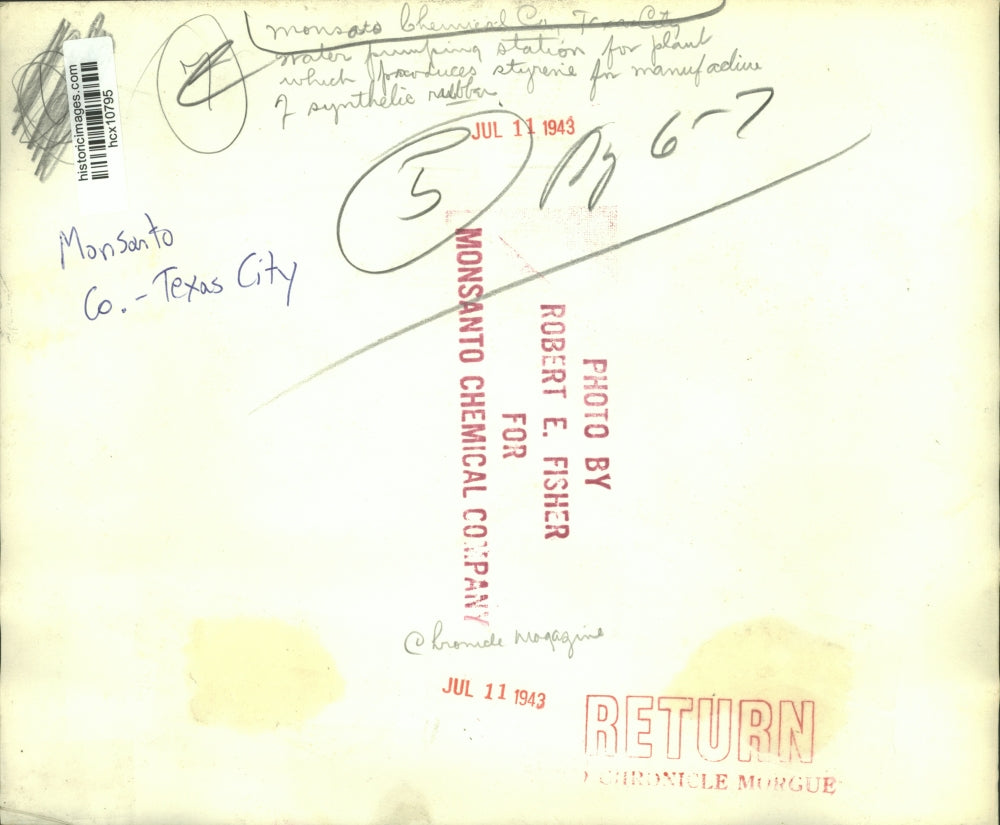 Monsato Chemical Co, Texas City
water pumping station for plant
which produces styrene for manufacture
of synthetic rubber
historicimages.com
hcx10795
JUL 11 1943
5
Pg 6-7
Monsanto
Co. - Texas City
PHOTO BY
ROBERT E. FISHER
FOR
MONSANTO CHEMICAL COMPANY
Chronicle Magazine
JUL 11 1943
RETURN
CHRONICLE MORGUE